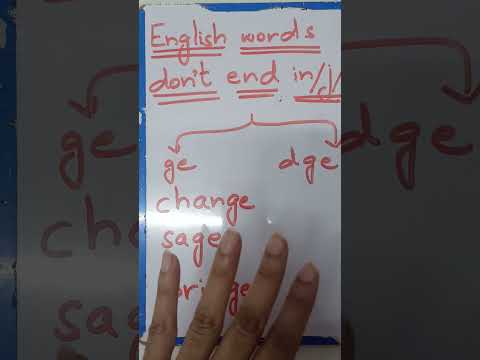 English words
don't end in /j/
ge dge
change
sage